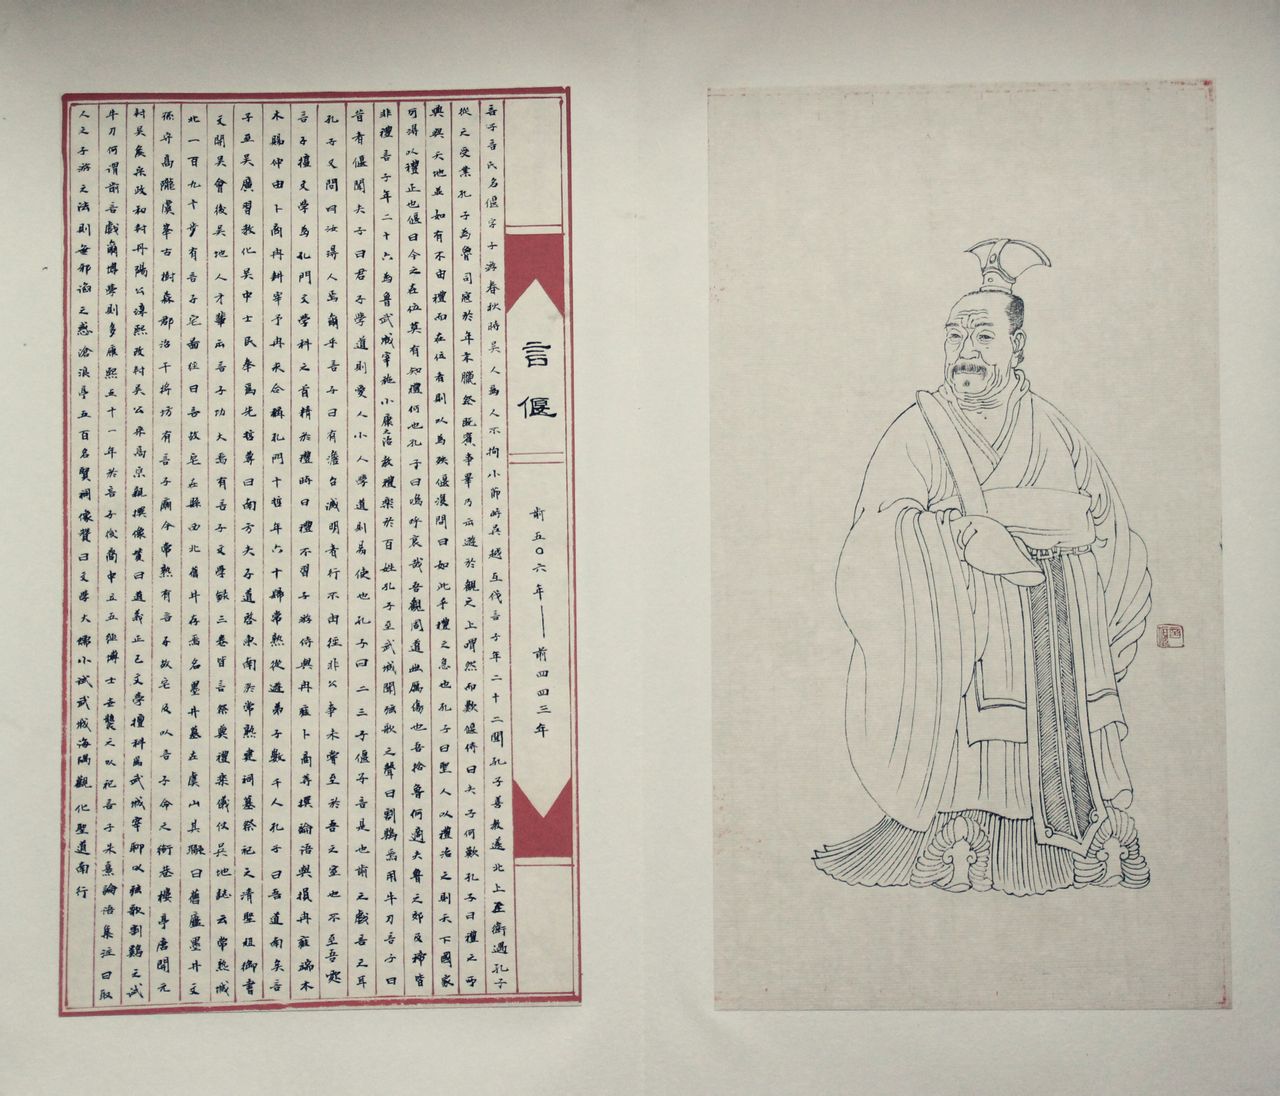 言偃
前五〇六年——前四四三年
言子言氏名偃字子游春秋時吳人為人不拘小節時吳越互伐言子年二十二聞孔子善教遂北上至衛遇孔子
從之受業孔子為魯司寇於年末臘祭既賓事畢乃出遊於觀之上喟然而歎偃侍曰夫子何歎孔子曰禮之所
興與天地並如有不由禮而在位者則以為殃偃復問曰如此乎禮之急也孔子曰聖人以禮治之則天下國家
可得以禮正也偃曰今之在位莫有知禮何也孔子曰嗚呼哀哉吾觀周道幽厲傷也吾捨魯何適夫魯之郊及禘皆
非禮言子年二十六為魯武城宰施小康之治教禮樂於百姓孔子至武城聞弦歌之聲曰割鷄焉用牛刀言子曰
昔者偃聞夫子曰君子學道則愛人小人學道則易使也孔子曰二三子偃子言是也前之戲言之耳
孔子又問曰汝得人焉爾乎言子曰有澹台滅明者行不由徑非公事未嘗至於吾之室也不至吾
言子擅文學為孔門文學科之首精於禮時曰禮不習子游侍與冉雍卜商等撰論語與損冉雍端木
木賜仲由卜商冉耕宰予冉求合稱孔門十哲年六十歸常熟從遊弟子數千人孔子曰吾道南矣言
子至吳廣習教化吳中士民奉為先哲尊曰南方夫子道啓東南於常熟建祠墓祭祀之清聖祖御書
文開吳會後吳地人才輩出言子功大焉有言子文學錄三卷皆言祭奠禮樂儀仗吳地誌云常熟城
北一百九十步有言子宅舊在曰言故宅在縣西北舊井存焉名墨井墓在虞山其聯曰舊廬墨井文
孫守高隴虞峯古樹森郡治干將坊有言子廟今常熟有言子故宅及以言子命之街巷樓亭唐開元
封吳矦宋政和封丹陽公淳熙改封吳公宋高宗親撰像贊曰道義正己文學擅科為武城宰聊以弦歌割鷄之試
牛刀何謂前言戲爾博學則多康熙五十一年於言子後裔中立五經博士世襲之以祀言子朱熹論語集注曰取
人之子游之法則無邪諂之惑滄浪亭五百名賢祠像贊曰文學大儒小試武城海隅觀化聖道南行